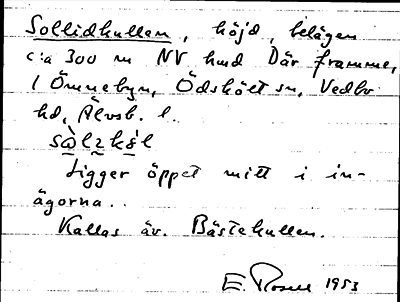 Sollidkullen, höjd, belägen
c:a 300 m NV hmd Där framme,
i Ömnebyn, Ödskölt sn, Vedbo
hd, Älvsb. l.
Ligger öppet mitt i in-
ägorna.
Kallas äv. Bästekullen.
E. Rosell 1953